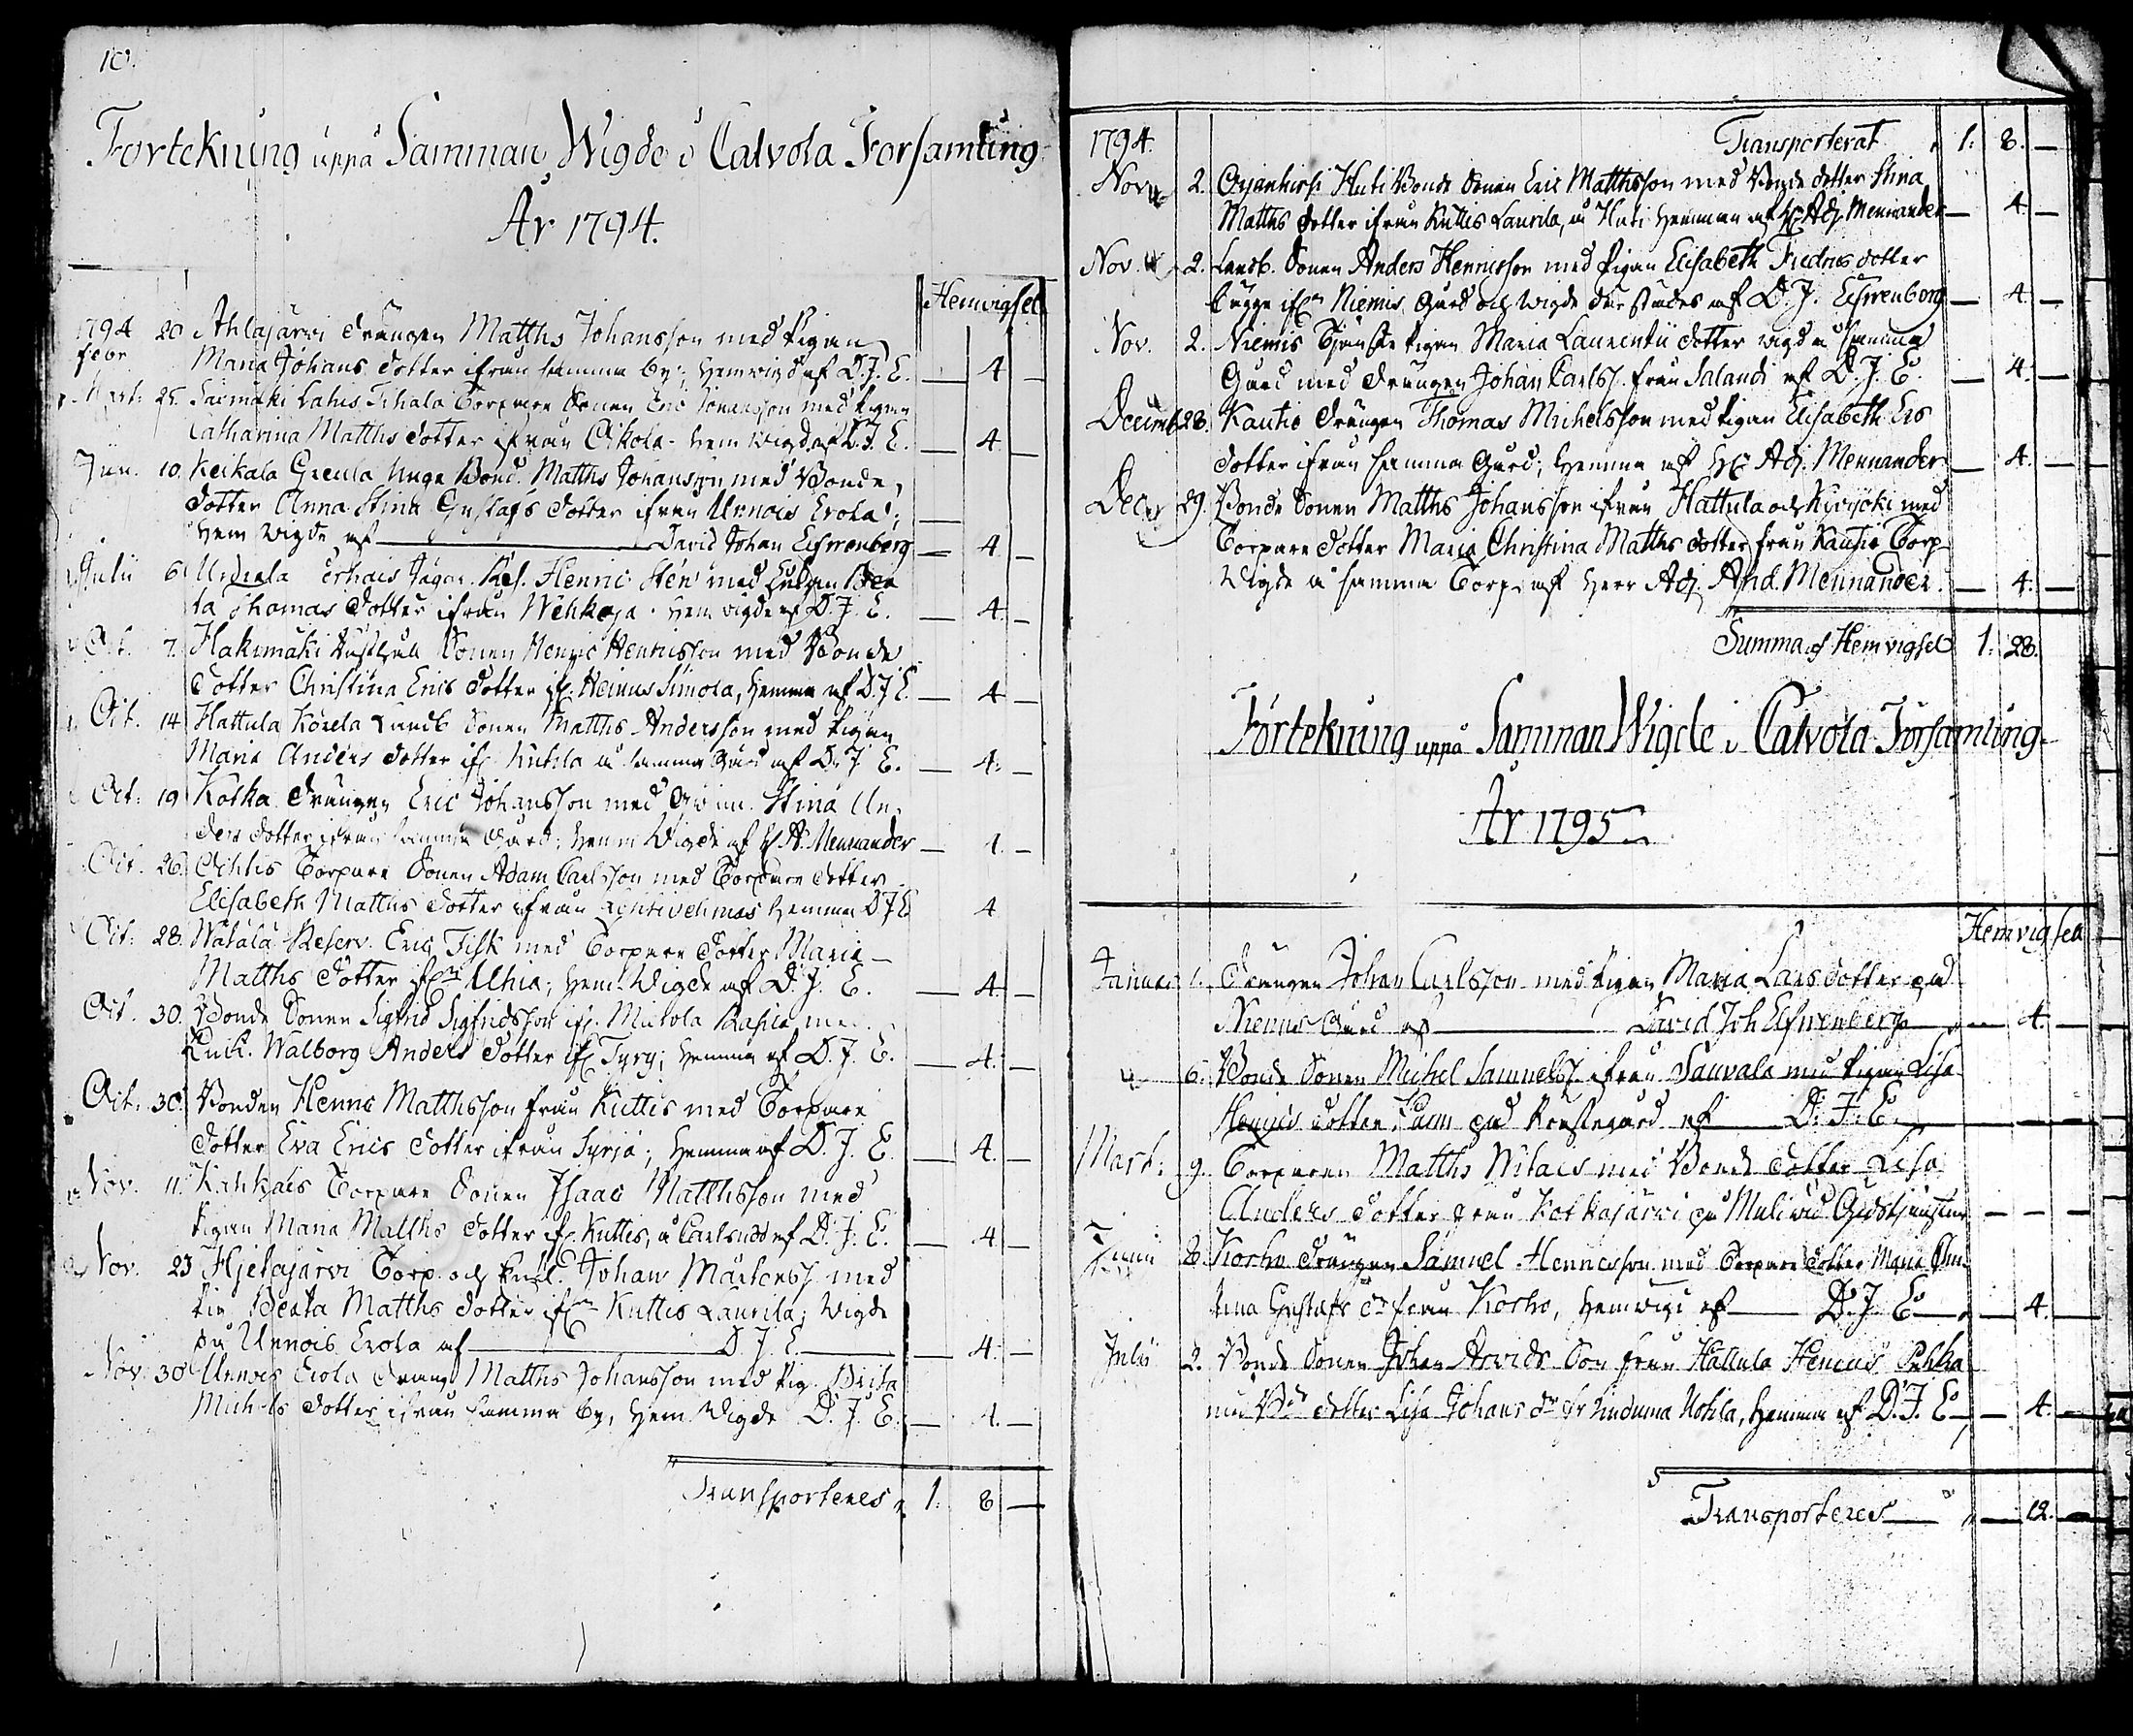 10.
Förtekning uppå Samman Wigde i Calvola Församling
År 1794.
Hemvigsel
1794 20 Ahlajärwi Drängen Matths Johansson med Pigan
Febr Maria Johans dotter ifrån samma by; Hemwigd af D. J. E. — 4 —
Mart: 25. Lahis Torpare Sonen Eric Johansson med Pigan
Catharina Matths dotter ifrån Oikola. Hemwigd af D. J. E. — 4 —
Jun. 10. Keikala Grecula Unge Bond. Matths Johansson med Bonde
dotter Anna Stina Gustafs dotter ifrån Unnois Erola;
Hem wigde af — David Johan Eßwenberg — 4 —
Julii 6 Urdiala Jägar. Kes. Henric Stén med
ta Thomas dotter ifrån Wehkaja. Hem wigde af D. J. E. — 4 —
Oct. 7. Hakimäki Sonen Henric Henricsson med Bonde
dotter Christina Erics dotter ifr. Heinus Simola, Hemma af D. J. E. — 4 —
Oct. 14 Hattula Körela Landb. Sonen Matths Andersson med Pigan
Maria Anders dotter ifr. Kutila å samma Gård af D. J. E. — 4. —
Oct: 19 Kotka Drängen Eric Johansson med Stina An
ders dotter ifrån samma Gård; Hem Wigde af H. A. Mennander — 4. —
Oct. 26. Torpare Sonen Adam Carlsson med Torpare dotter
Elisabeth Matths dotter ifrån Hemma D J E 4
Oct: 28. Wätälä Reserv. Eric Fisk med Torpare dotter Maria
Matths dotter ifrn Ahia; Hem Wigde af D. J. E. — 4. —
Oct. 30. Bonde Sonen Sigfrid Sigfridsson ifr. Mickola Rasila me
Enk. Walborg Anders dotter ifr. Tyry; Hemma af D. J. E. — 4. —
Oct. 30. Bonden Henric Matthsson från Kuttis med Torpare
dotter Eva Erics dotter ifrån Syrjä; Hemma af D. J. E. — 4. —
Nov. 11. Kahkais Torpare Sonen Isaac Matthsson med
Pigan Maria Matths dotter ifr. Kuttis, å Carlsudd af D. J. E. — 4 —
Nov. 23 Hjetajärvi Torp. och Enkl. Johan Mårtenss. med
Pig Beata Matths dotter ifrn Kuttis Laurila; Wigde
på Unnois Erola af — D. J. E. — 4. —
Nov. 30 Unnois Erola Dräng Matths Johansson med Pig. Brita
Michels dotter ifrån samma by, Hem Wigde D. J. E. — 4. —
Transporteres 1. 8 —
1794. Transporterat 1: 8. —
Nov. 2. Huti Bonde Sonen Eric Matthsson med Bonde dotter Stina
Matths dotter ifrån Kuttis Laurila, å Huti Hemman af Hr Adj. Mennander — 4. —
Nov. 2. Landb. Sonen Anders Henricsson med Pigan Elisabeth Fredrics dotter
begge ifrn Niemis Gård och Wigde därstädes af D. J. Eßwenborg — 4. —
Nov. 2. Niemis Tjenste Pigan Maria Laurentii dotter wigd å samma
Gård med Drängen Johan Carlss. från Salandi af D. J. E. — 4. —
Decemb 28. Kautio Drängen Thomas Michelsson med Pigan Elisabeth Ers
dotter ifrån samma Gård; Hemma af Hr Adj. Mennander — 4. —
Decr 29. Bonde Sonen Matths Johansson ifrån Hattula och Kivijoki med
Torpare dotter Maria Christina Matths dotter från Kautio Torp
Wigde å samma Torp af Herr Adj. And. Mennander. — 4. —
Summa af Hemvigsel 1: 28.
Förtekning uppå Samman Wigde i Calvola Församling
År 1795
Hemvigsel
Januar. 1. Drängen Johan Carlsson med Pigan Maria Lars dotter på
Niemis Gård af — David Joh Eßwenberg — 4. —
6. Bonde Sonen Michel Samuelss. ifrån Sauvala med Pigan Lisa
Henrics dotter på Prestegård af — D. J. E. — — —
Mart: 9. Torparen Matths Wilais med Bonde dotter Lisa
Anders dotter från Kotkajärvi på wid Gudstjensten — — —
Junii 8. Korho Drängen Samuel Henricsson med Torpare dotter Maria
Gustafs dr från Korho, Hemwigd af — D. J. E. — 4. —
Julii 2. Bonde Sonen Johan Arvids Son från Hattula Pekka
med Bde dotter Lisa Johans dr ifr Uotila, Hemma af D. J. E — 4. —
Transporteres — 12. —